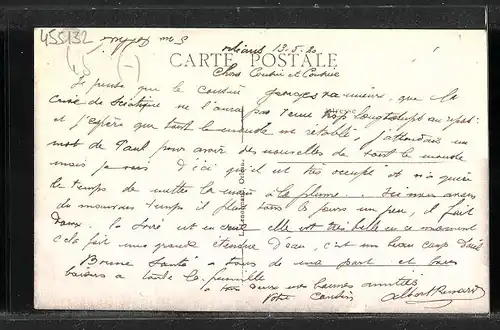 455132
Orléans 13.5.20
CARTE POSTALE
Chers Cousin et Cousine
Je pense que le cousin Georges va mieux, que la
crise de sciatique ne l'aura pas tenue trop longtemps au repos
et j'espère que tout le monde est rétabli j'attendais un
mot de Paul pour avoir des nouvelles de tout le monde
mais je vois d'ici qu'il est très occupé et n'a guère
le temps de mettre la main à la plume. Ici nous avons
de mauvais temps il pleut tous les jours un peu, il fait
doux. la Loire est en crue elle est très belle en ce moment
cela fait une grande étendue d'eau, c'est un beau coup d'œil
Bonne Santé à tous de ma part et bons
baisers à toute la famille
à vous mes bonnes amitiés
Votre Cousin Albert Renard